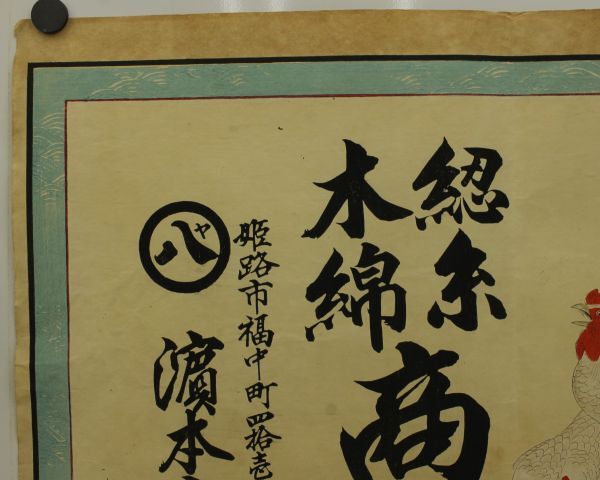 綛糸
木綿
商
姫路市福中町四拾壱
ヤ
八
濱本